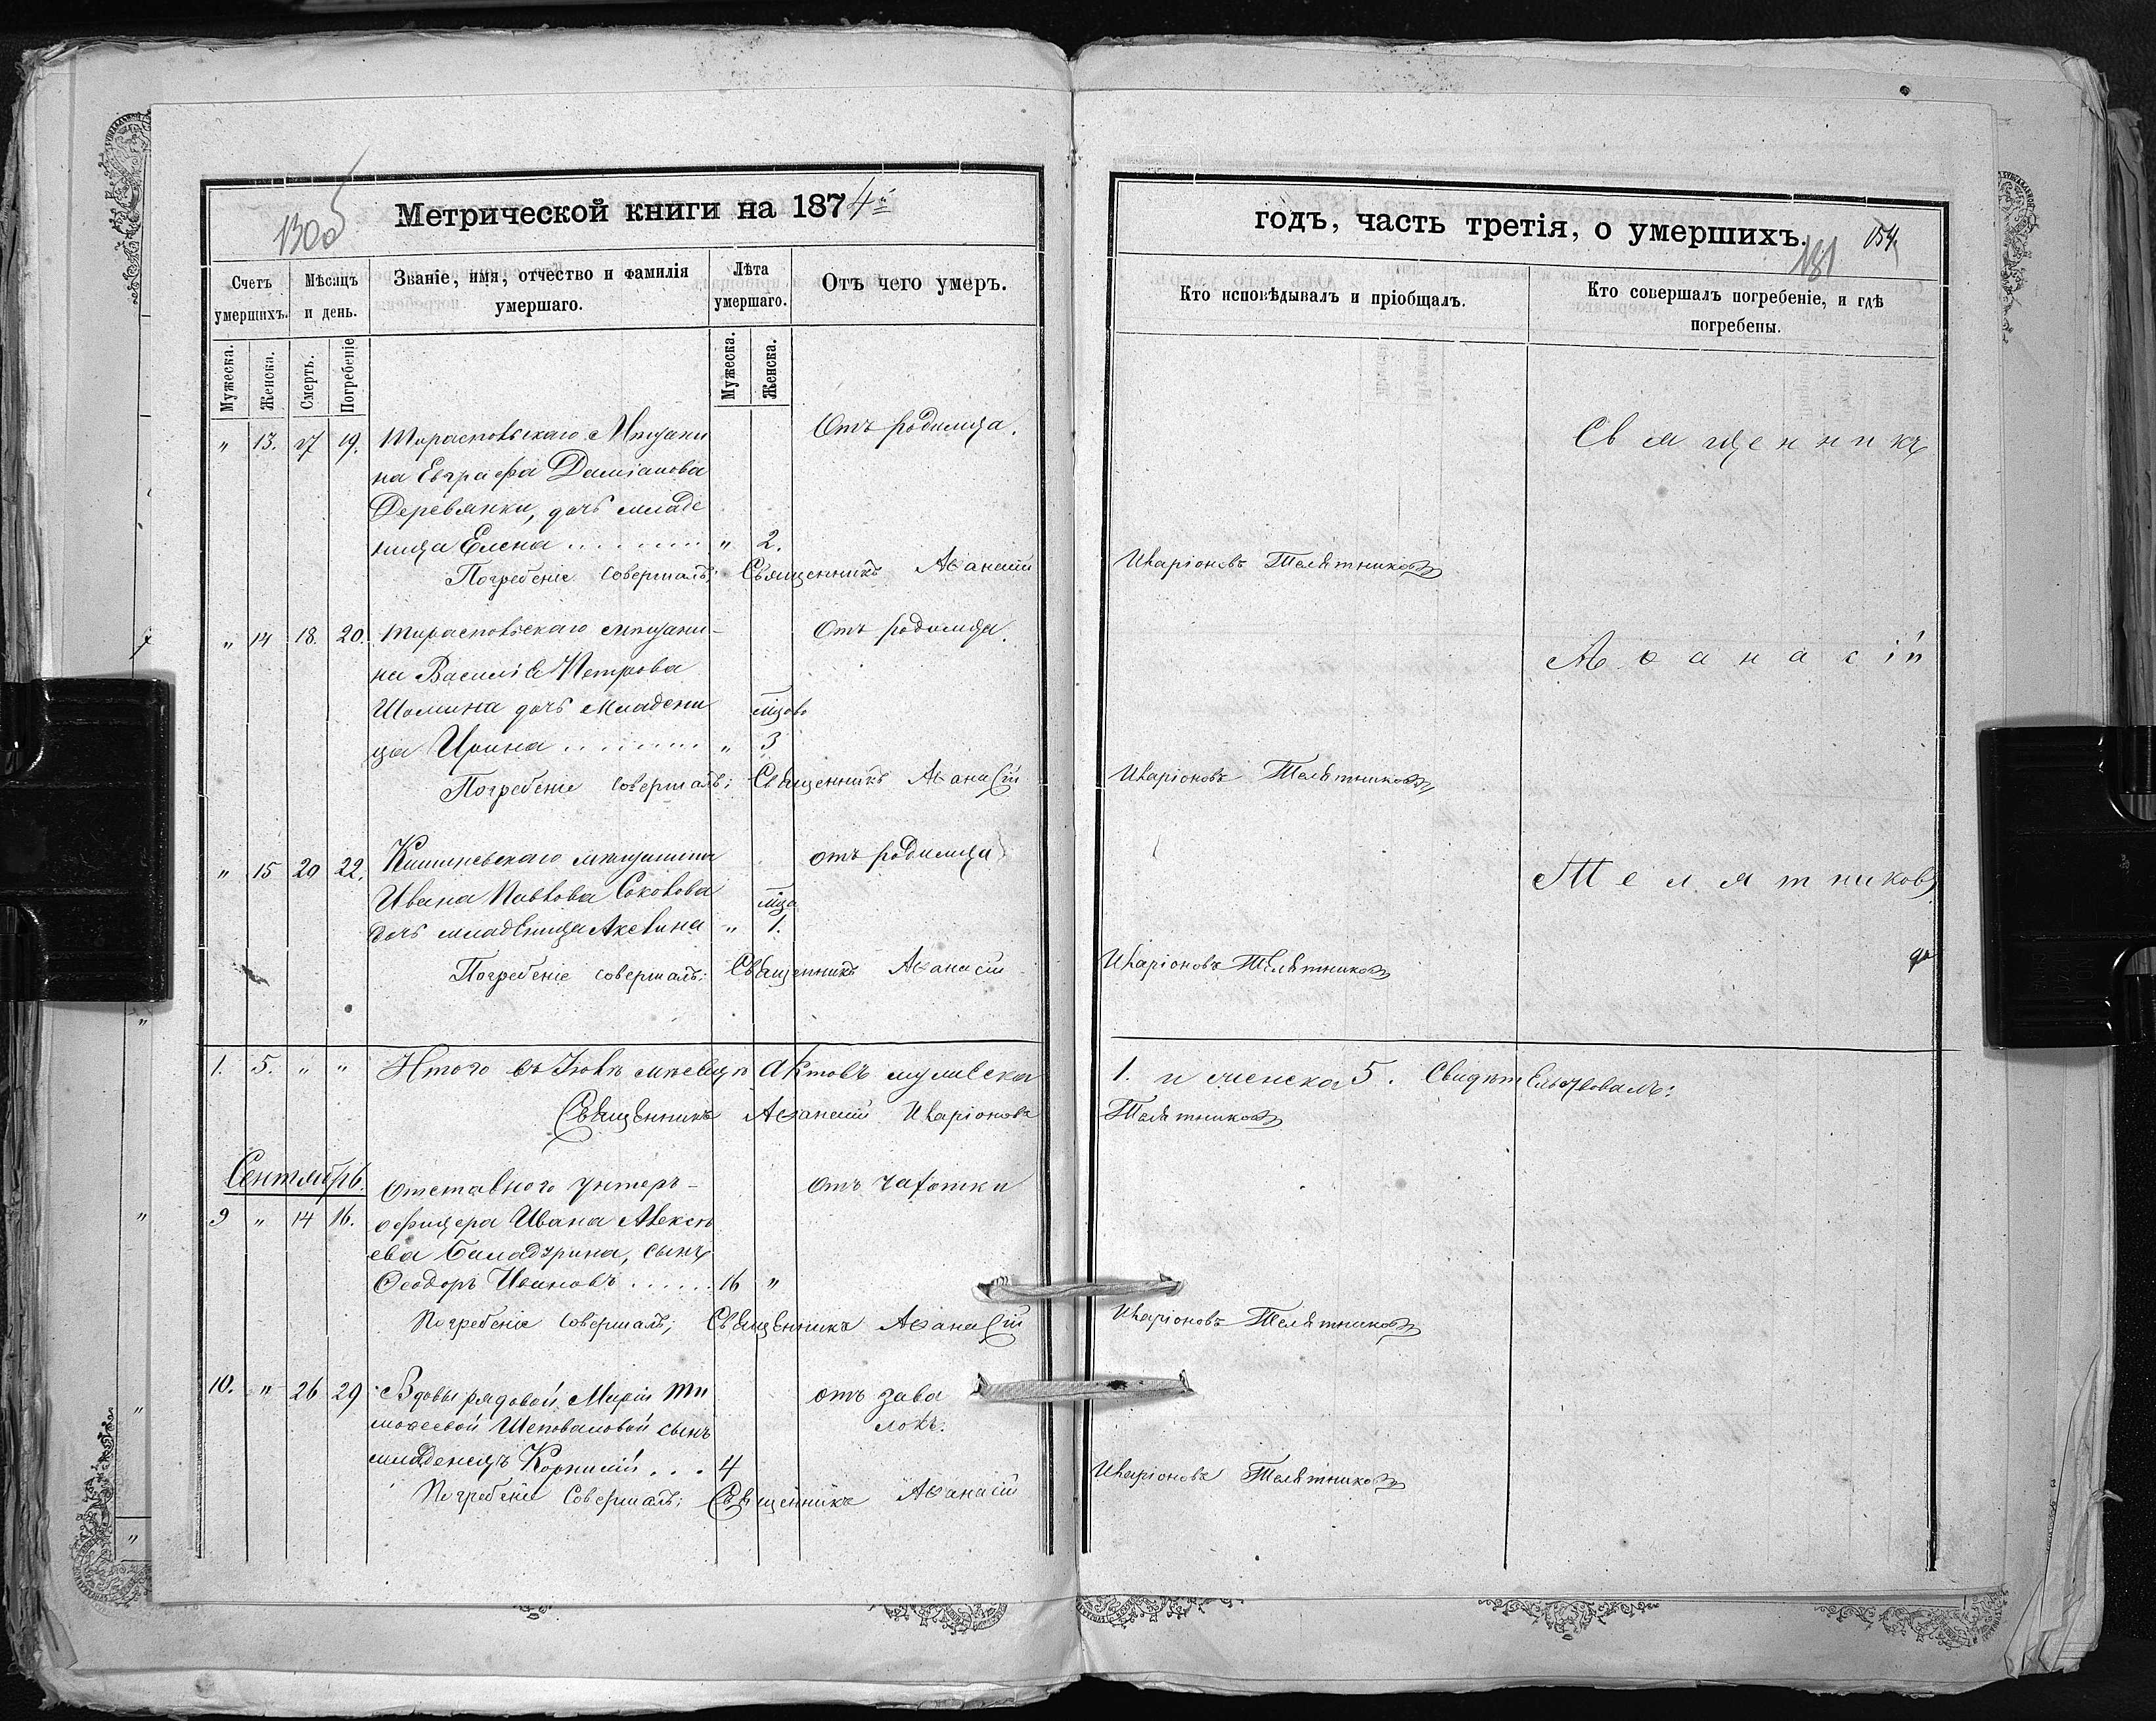 1300
5
Метрической книги на 1874й
годъ, часть третія, о умершихъ.
181
154
Счетъ умершихъ.
Мѣсяцъ и день.
Званіе, имя, отчество и фамилія умершаго.
Лѣта умершаго.
Отъ чего умеръ.
Кто исповѣдывалъ и пріобщалъ.
Кто совершалъ погребеніе, и гдѣ погребены.
Мужеска.
Женска.
Смерть.
Погребеніе
Мужеска.
Женска.
" 13. 17 19. Тираспольскаго Мѣщани Отъ родимца.
на Евграфа Даміанова
Деревянки, дочь младе
ница Елена . . . . . . . . " 2.
Погребеніе совершалъ; Священникъ Аѳанасій Иларіоновъ Телятниковъ
" 14 18. 20. Тираспольскаго мѣщани- Отъ родимца.
на Василія Петрова
Шомина дочь Младени мѣсяцовъ
ца Ирина . . . . . . . . " 3
Погребеніе совершалъ; Священникъ Аѳанасій Иларіоновъ Телятниковъ
" 15 20 22. Кишиневскаго мѣщанина отъ родимца
Ивана Павлова Соколова мѣсяца
дочь младеница Акелина " 1.
Погребеніе совершалъ: Священникъ Аѳанасій Иларіоновъ Телятниковъ
Священникъ
Аѳанасій
Телятниковъ
1. 5. " " Итого въ Іюлѣ мѣсяцѣ актовъ мужеска 1. и женска 5. Свидѣтельствовалъ:
Священникъ Аѳанасій Иларіоновъ Телятниковъ
Сентябрь.
Отставного унтеръ- отъ чахотки
9 " 14 16. офицера Ивана Алексѣ
ева Баладурина, сынъ
Ѳеодоръ Ивановъ . . . . . . 16 "
Погребеніе совершалъ; Священникъ Аѳанасій Иларіоновъ Телятниковъ
10. " 26 29 Вдовы рядовой Маріи Ти отъ зава
моѳеевой Шеповаловой сынъ локъ.
младенецъ Корнилій . . . 4
Погребеніе Совершалъ; Священникъ Аѳанасій Иларіоновъ Телятниковъ